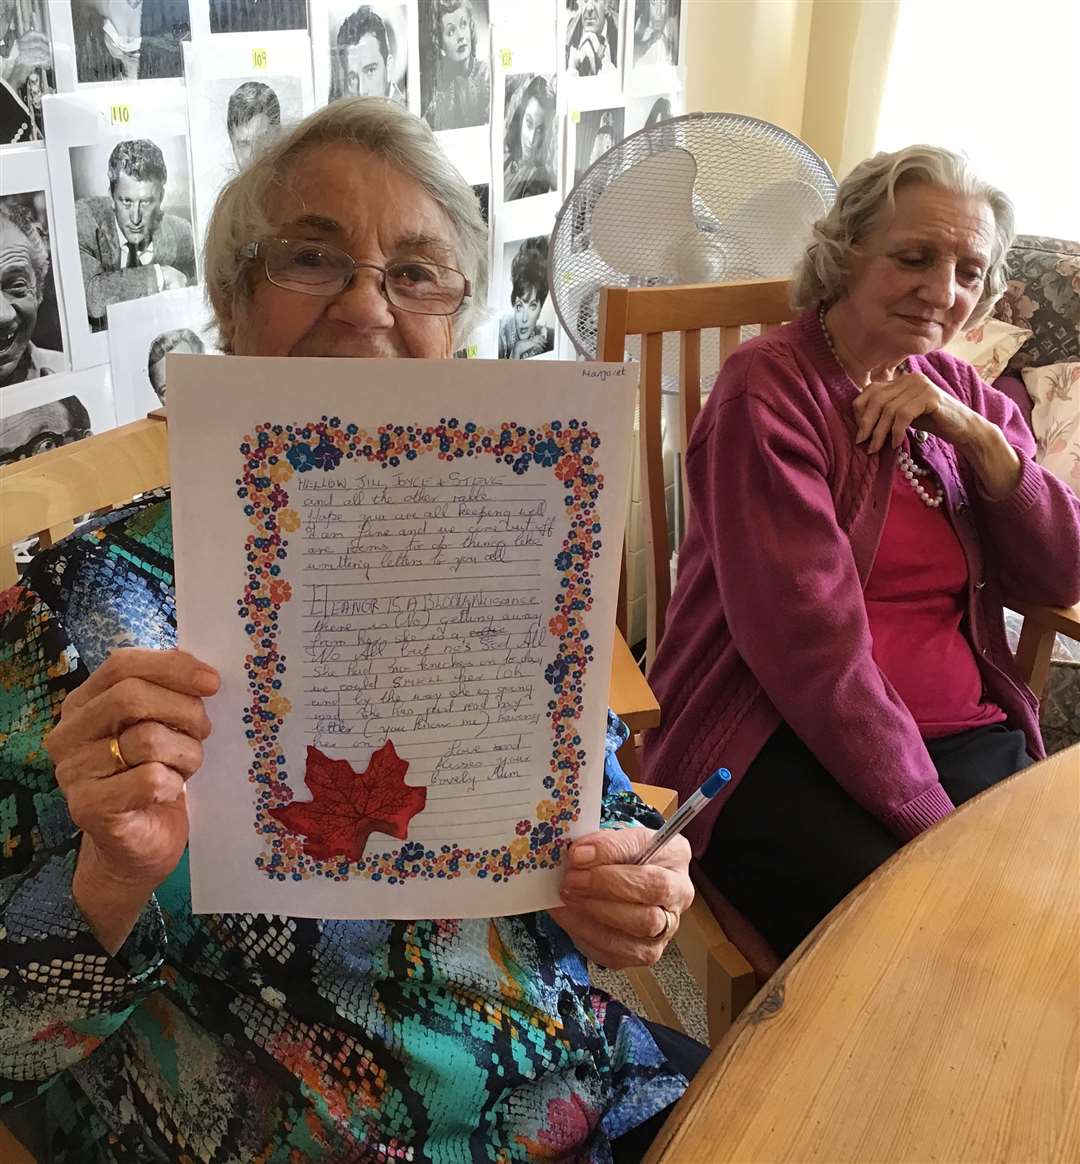 109
110
Margaret
HELLOW JILL, JOYCE + STEVE
and all the other
Hope you are all keeping well
I am fine and we cone but off
are rooms to do things like
writting letters to you all
ELEANOR IS A BLOODY NUISANCE
there is (No) getting away
from her she is a
No All but no's Sod All
She had no knickers on to-day
we could SMELL her (Oh
and by the way she is going
mad she has just read my
letter (you know me) having
her on
Love and
Kisses your
lovely Mum